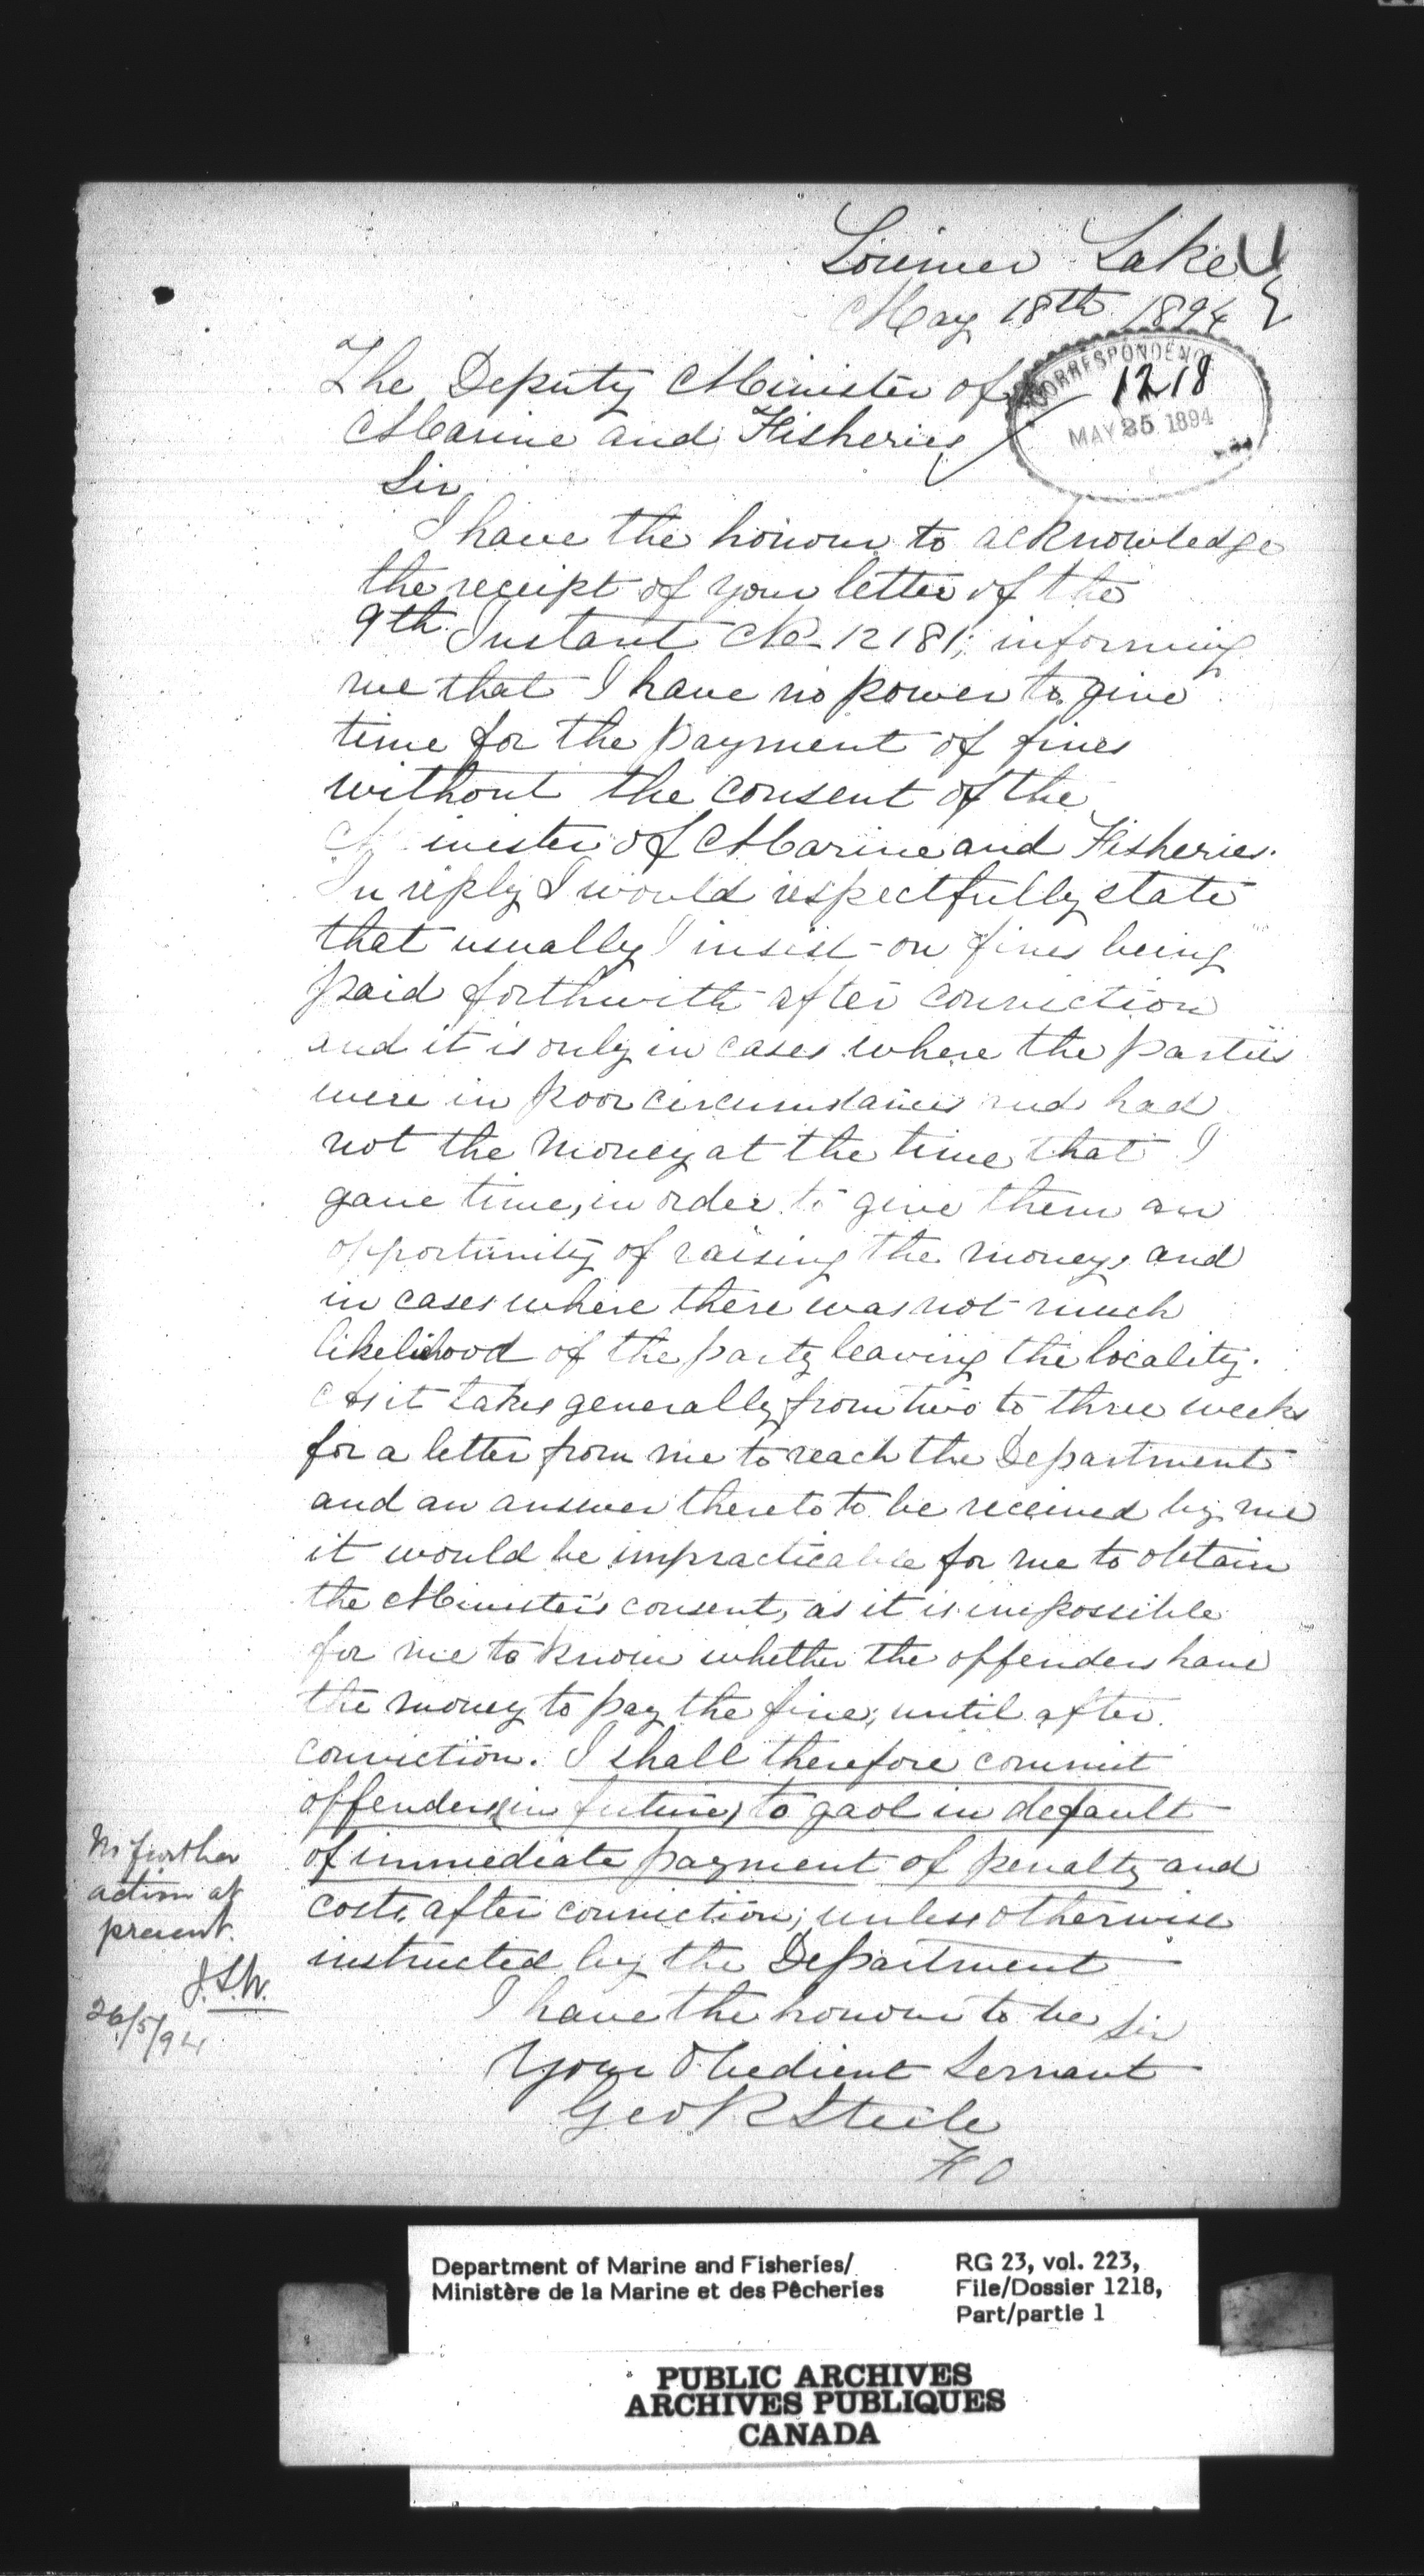 Lorimer Lake
May 18th 1894
The Deputy Minister of
Marine and Fisheries
CORRESPONDENC
1218
MAY 25 1894
Sir
I have the honour to acknowledge
the receipt of your letter of the
9th Instant No 12181; informing
me that I have no power to give
time for the payment of fines
without the consent of the
Minister of Marine and Fisheries.
In reply I would respectfully state
that usually I insist on fines being
paid forthwith after conviction
and it is only in cases where the parties
were in poor circumstances and had
not the money at the time that I
gave time, in order to give them an
opportunity of raising the money, and
in cases where there was not much
likelihood of the party leaving the locality.
As it takes generally from two to three weeks
for a letter from me to reach the Department
and an answer thereto to be received by me
it would be impracticable for me to obtain
the Minister's consent, as it is impossible
for me to know whether the offenders have
the money to pay the fine, until after
conviction. I shall therefore commit
offenders (in future) to gaol in default
of immediate payment of penalty and
costs after conviction; unless otherwise
instructed by the Department
I have the honour to be Sir
Your Obedient Servant
Geo R Steele
F O
No further
action at
present.
J.S.W.
26/5/94
Department of Marine and Fisheries/
Ministère de la Marine et des Pêcheries
RG 23, vol. 223,
File/Dossier 1218,
Part/partie 1
PUBLIC ARCHIVES
ARCHIVES PUBLIQUES
CANADA